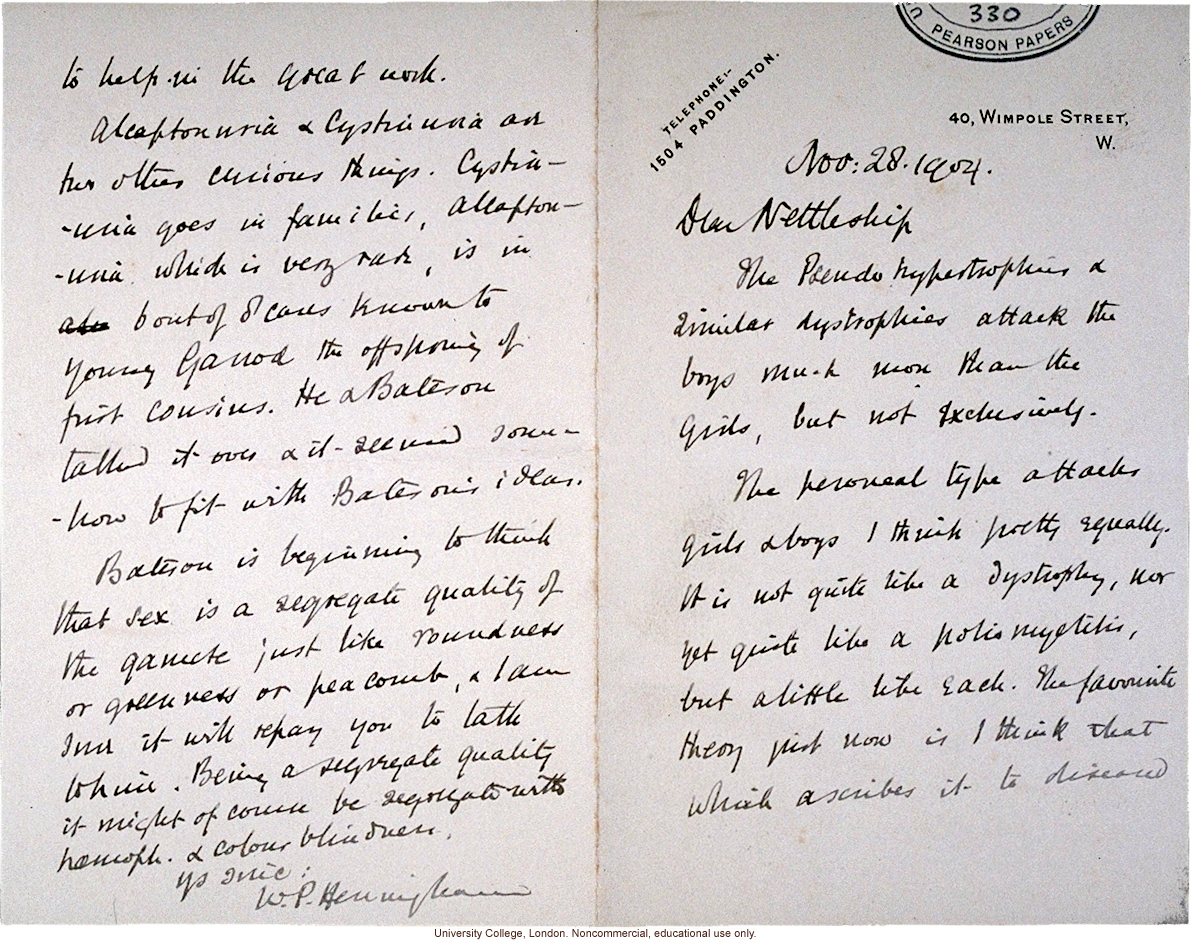 330
PEARSON PAPERS
TELEPHONE:-
1504 PADDINGTON.
40, WIMPOLE STREET,
W.
Nov: 28. 1904.
Dear Nettleship
The Pseudo hypertrophies &
similar dystrophies attack the
boys much more than the
Girls, but not exclusively.
The peroneal type attacks
girls & boys I think pretty equally.
It is not quite like a dystrophy, nor
yet quite like a poliomyelitis,
but a little like each. The favourite
theory just now is I think that
which ascribes it to diseased
to help in the great work.
Alcaptonuria & Cystinuria are
two other curious things. Cystin-
-uria goes in families, Alcapton-
-uria which is very rare, is in
6 out of 8 cases known to
young Garrod the offspring of
first cousins. He & Bateson
talked it over & it seemed some-
-how to fit with Bateson's ideas.
Bateson is beginning to think
that sex is a segregate quality of
the gamete just like roundness
or greenness or peacomb, & I am
sure it will repay you to talk
to him. Being a segregate quality
it might of course be segregate with
hæmoph. & colour blindness.
Ys sinc:
W.P. Herringham
University College, London. Noncommercial, educational use only.